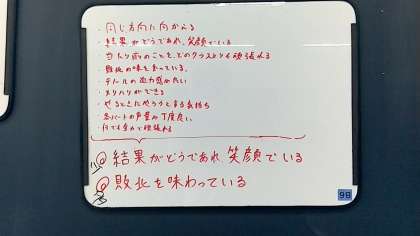 ・同じ方向に向かえる
・結果がどうであれ、笑顔でいる
・当たり前のことを、どのクラスよりも頑張れる
・敗北の味を知っている。
・テノールの出力高めたい
・メリハリができる
・やるときはやろうとする気持ち
・各パートの声量の丁度良い
・何でも全力で頑張れる
◎結果がどうであれ、笑顔でいる
◎敗北を味わっている
9B